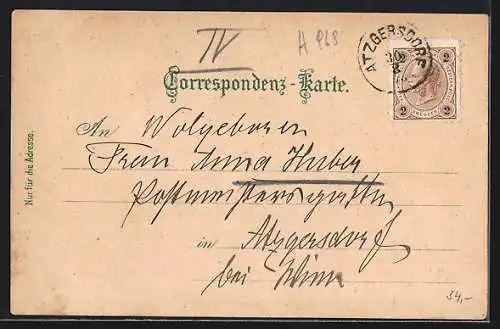 IV
A 968
ATZGERSDORF
30
2
2 2
Correspondenz-Karte.
Nur für die Adresse.
An Wolgeboren
Frau Anna Huber
Postmeistersgattin
in Atzgersdorf
bei Wien
34,-